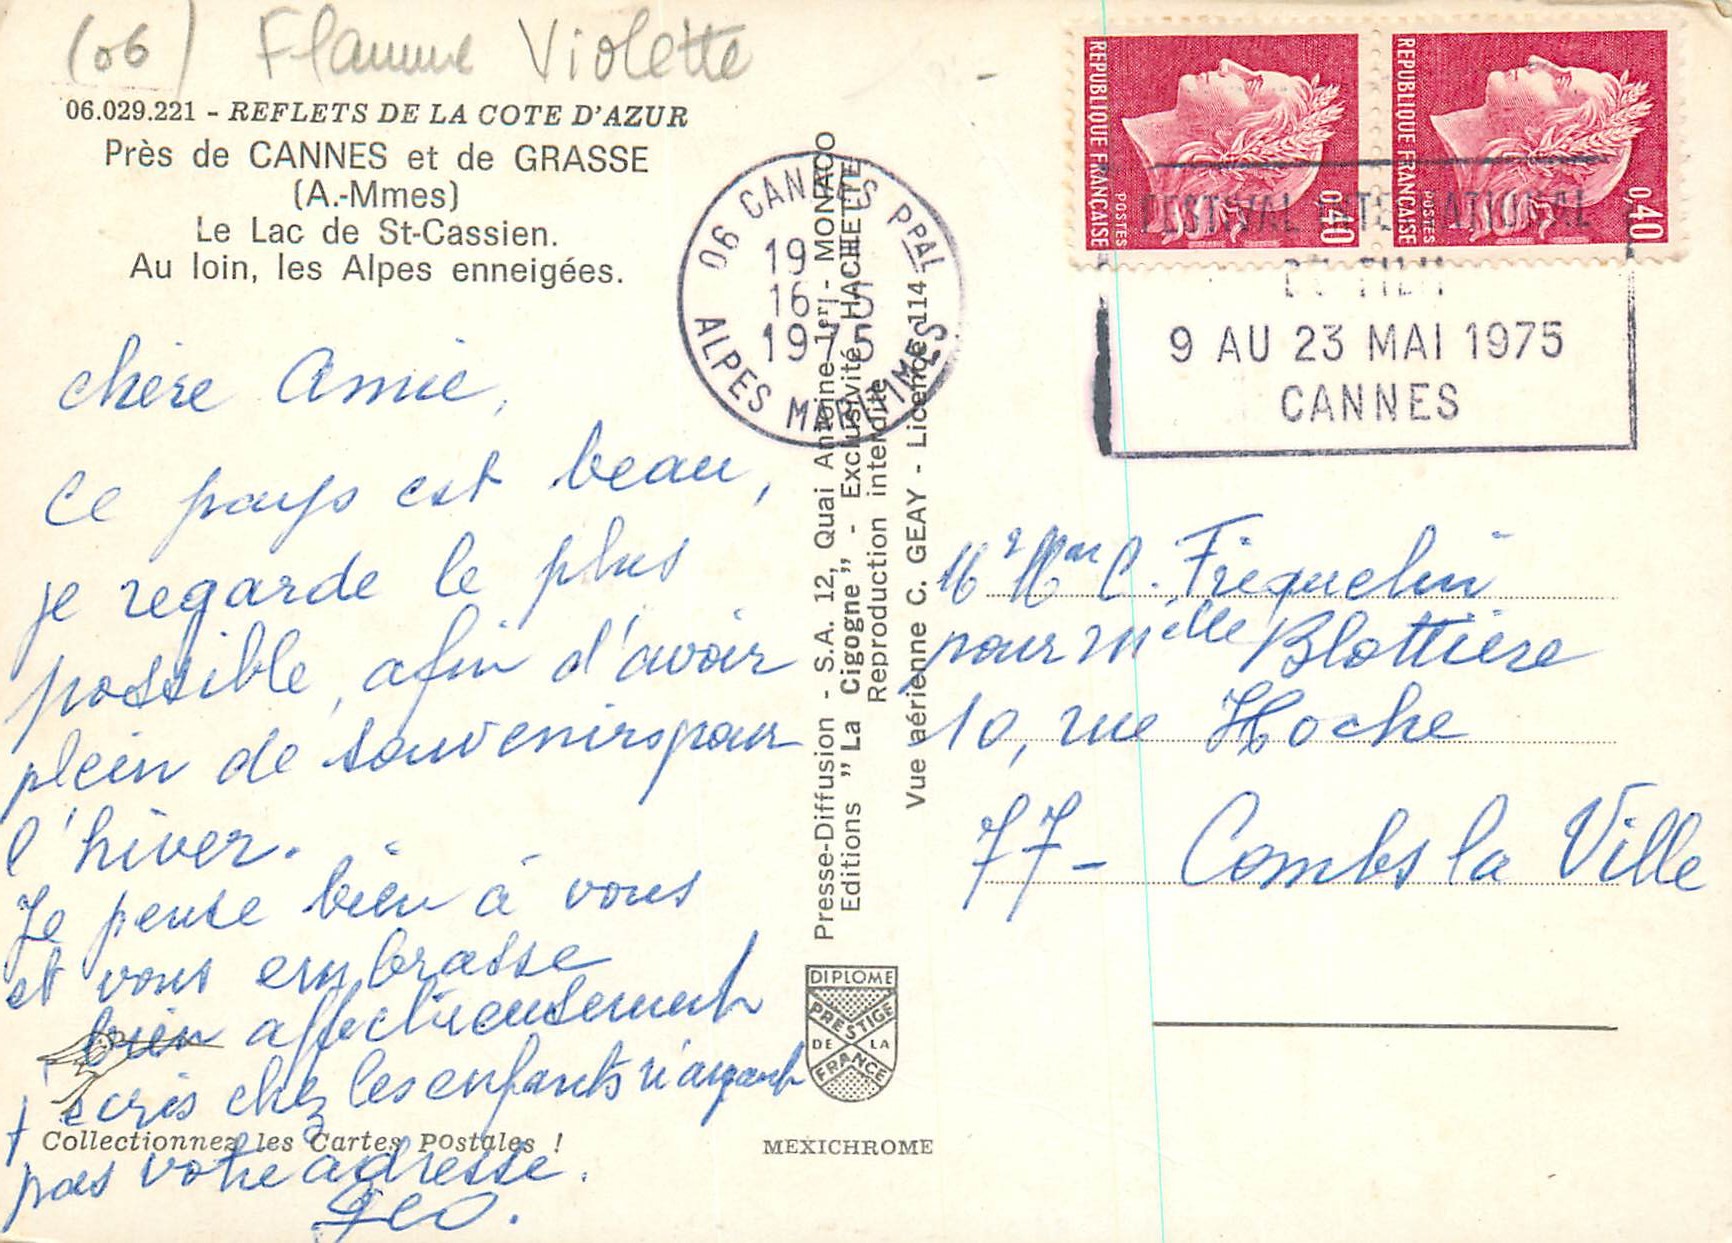 (06) Flamme Violette
06.029.221 - REFLETS DE LA COTE D'AZUR
Près de CANNES et de GRASSE
(A.-Mmes)
Le Lac de St-Cassien.
Au loin, les Alpes enneigées.
chère Amie,
Ce pays est beau,
je regarde le plus
possible, afin d'avoir
plein de souvenirs pour
l'hiver.
Je pense bien à vous
et vous embrasse
bien affectueusement
J'écris chez les enfants n'ayant
pas votre adresse.
Géo.
Collectionnez les Cartes Postales !
Presse-Diffusion - S.A. 12, Quai Antoine 1er - MONACO
Editions " La Cigogne " - Exclusivité HACHETTE
Reproduction interdite
Vue aérienne C. GEAY - Licence 114
DIPLOME
PRESTIGE
DE LA
FRANCE
MEXICHROME
06 CANNES PPAL
19 H
16 - 5
1975
ALPES MARITIMES
REPUBLIQUE FRANÇAISE
POSTES
0,40
REPUBLIQUE FRANÇAISE
POSTES
0,40
FESTIVAL INTERNATIONAL
DU FILM
9 AU 23 MAI 1975
CANNES
Mr Mme C. Frequelin
pour Melle Blottière
10, rue Hoche
77 - Combs la Ville